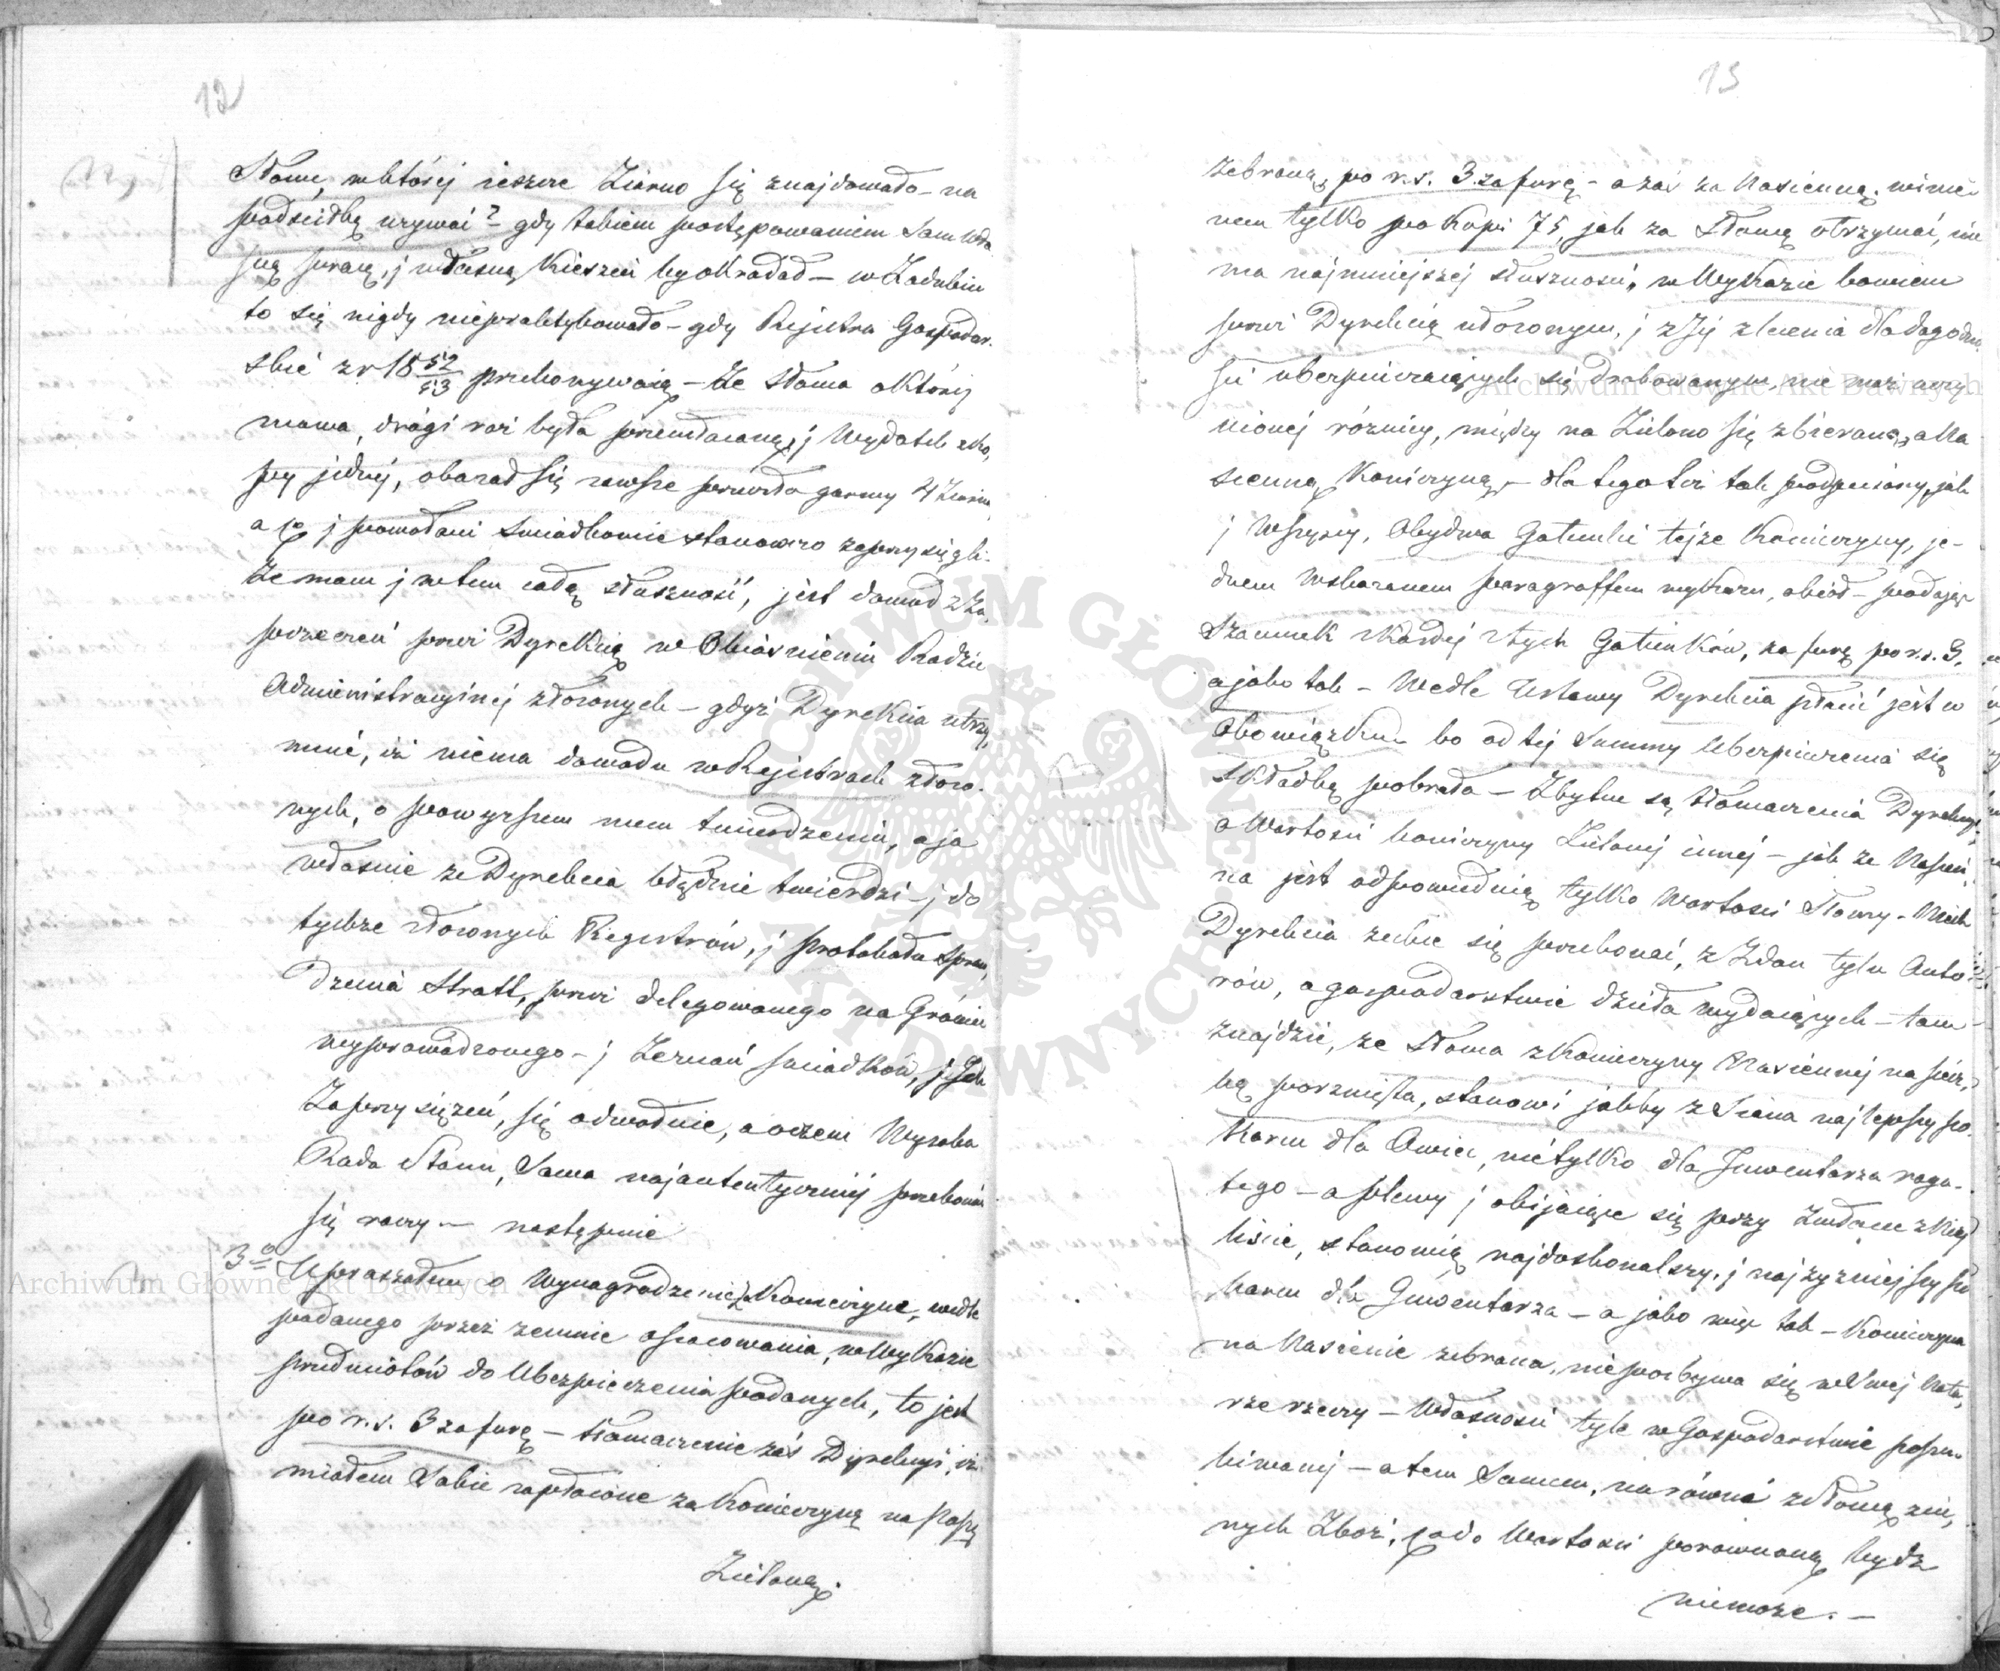 12
Słomę, w której ieszcze Ziarno się znajdowało – na
podściółkę używać? – gdy takiem postępowaniem Sam wła
sną pracę, j własną Kieszeń by okradał – w Zadubiu
to się nigdy niepraktykowało – gdy Rejestra Gospodar-
skie z r 18 52/53 przekonywaią – że Słoma o której
mowa, drugi raz była przemłacaną, j Wydatek z ko,
py jednéj, okazał się zawsze przeszło garncy 4 Ziarna,
a to j powołani Swiadkowie stanowczo zaprzysięgli:
że mam j w tem całą słuszność, jest dowod z Za
przeczeń przez Dyrekcią w Obiasnieniu Radzie
Administracyjnej złożonych – gdyż Dyrekcia utrzy,
muie, iż niema dowodu w Rejestrach złożo-
nych, o powyzszem mem twierdzeniu, a ja
własnie że Dyrekcia błędnie twierdzi – j do
tychże złożonych Regestrów, j protokołu spraw,
dzenia Stratt, przez delegowanego na Grόncie
wyprowadzonego – j Zeznań swiadków, j Ich
Zaprzysiężeń, się odwołuie, a oczem Wysoka
Rada Stanu, Sama najautentyczniej przekonac
się raczy. – następnie
3o Upraszałem o Wynagrodzenie Z Koniczynę, wedle
podanego przez zemnie oszacowania, w Wykazie
przedmiotów do Ubezpieczenia podanych, to jest
po r. s. 3 za furę – tłomaczenie zaś Dyrekcyi, iż
miałem Sobie zapłacone za Koniczynę na Paszę
Zieloną.
13
zebraną, po r. s. 3 za furę – a zaś za Nasienną, winie-
nem tylko po Kopi 75, jak za Słomę otrzymać, nie
ma najmniejszej słuszności, w Wykazie bowiem
przez Dyrekcią ułożonym, j z Jej zlecenia dla dogodno,
ści ubezpieczaiących się drukowanym, nie masz uczy
nionej różnicy, między na Zielono się zbieraną, a Na
sienną Koniczyną, – dla tego też tak podpisany, jak
j Wszyscy, Obydwa Gatunki tejże Koniczyny, je-
dnem Wskazanem paragraffem wykazu, obiął – podając
Szacunek Każdej z tych Gatunków, za furę po r. s. 3.
a jako tak – Wedle Ustawy Dyrekcia płacić jest w
Obowiązku – bo od tej Summy Ubezpieczenia się
składkę pobrała – Zbytnie są tłomaczenia Dyrekcyi,
o Wartości koniczyny Zielonej innej – jak ze Nasien,
na jest odpowiednią tylko Wartości Słomy. – Niech
Dyrekcia zechce się przekonać, z Zdań tylu Auto
rów, o gospodarstwie dzieła wydaiących – tam
znajdzie, że Słoma z Koniczyny Nasiennej na siecz,
kę porznięta, stanowi jakby z Siana najlepszy po-
karm dla Owiec, nietylko dla Inwentarza roga-
tego – a plewy j obijaiące się przy Zwózce z niej
liście, stanowią najdoskonalszy, j najżyzniejszy po
karm dla Inwentarza – a jako więc tak – Koniczyna
na Nasienie zebrana, niepozbywa się w Swej Natu,
rze rzeczy – Własności tyle w Gospodarstwie poszu-
kiwanej – a tem Samem, na równi ze Słomą zin,
nych Zbóż, co do Wartości porównaną bydz
niemoże. –